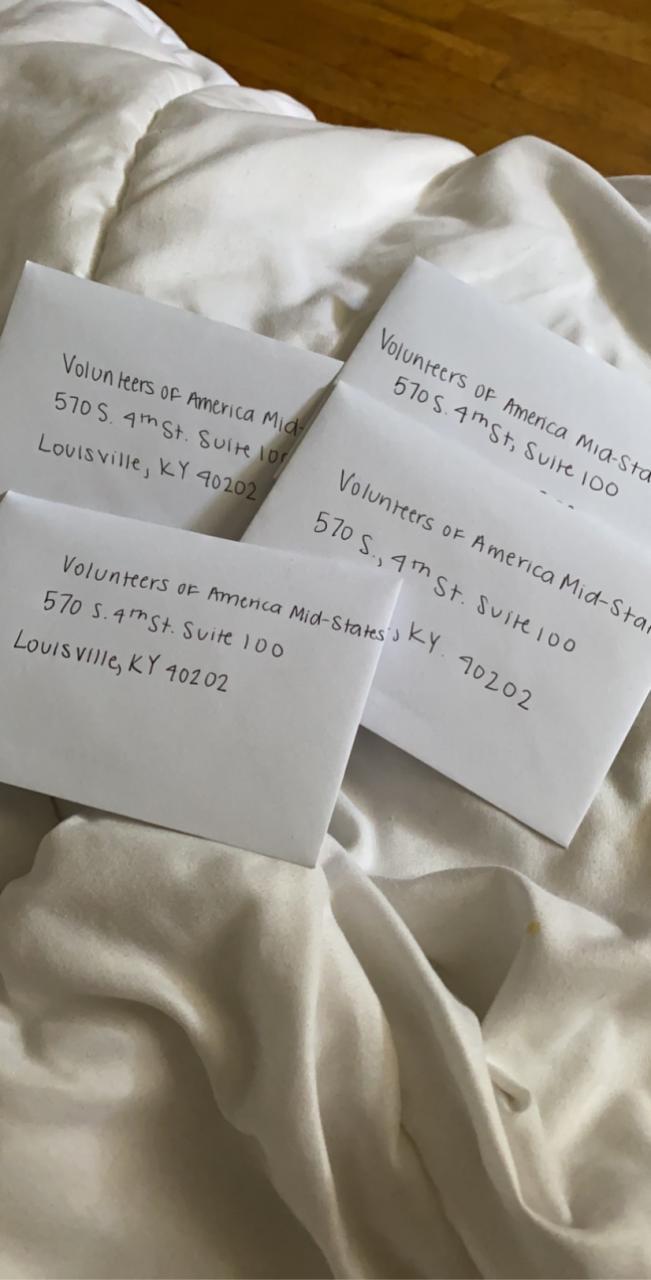 Volunteers of America Mid-
570 S. 4th St. Suite 10
Louisville, KY 40202
Volunteers of America Mid-Sta
570 S. 4th St, Suite 100
Volunteers of America Mid-Sta
570 S., 4th St. Suite 100
, KY. 40202
Volunteers of America Mid-States
570 S. 4th St. Suite 100
Louisville, KY 40202